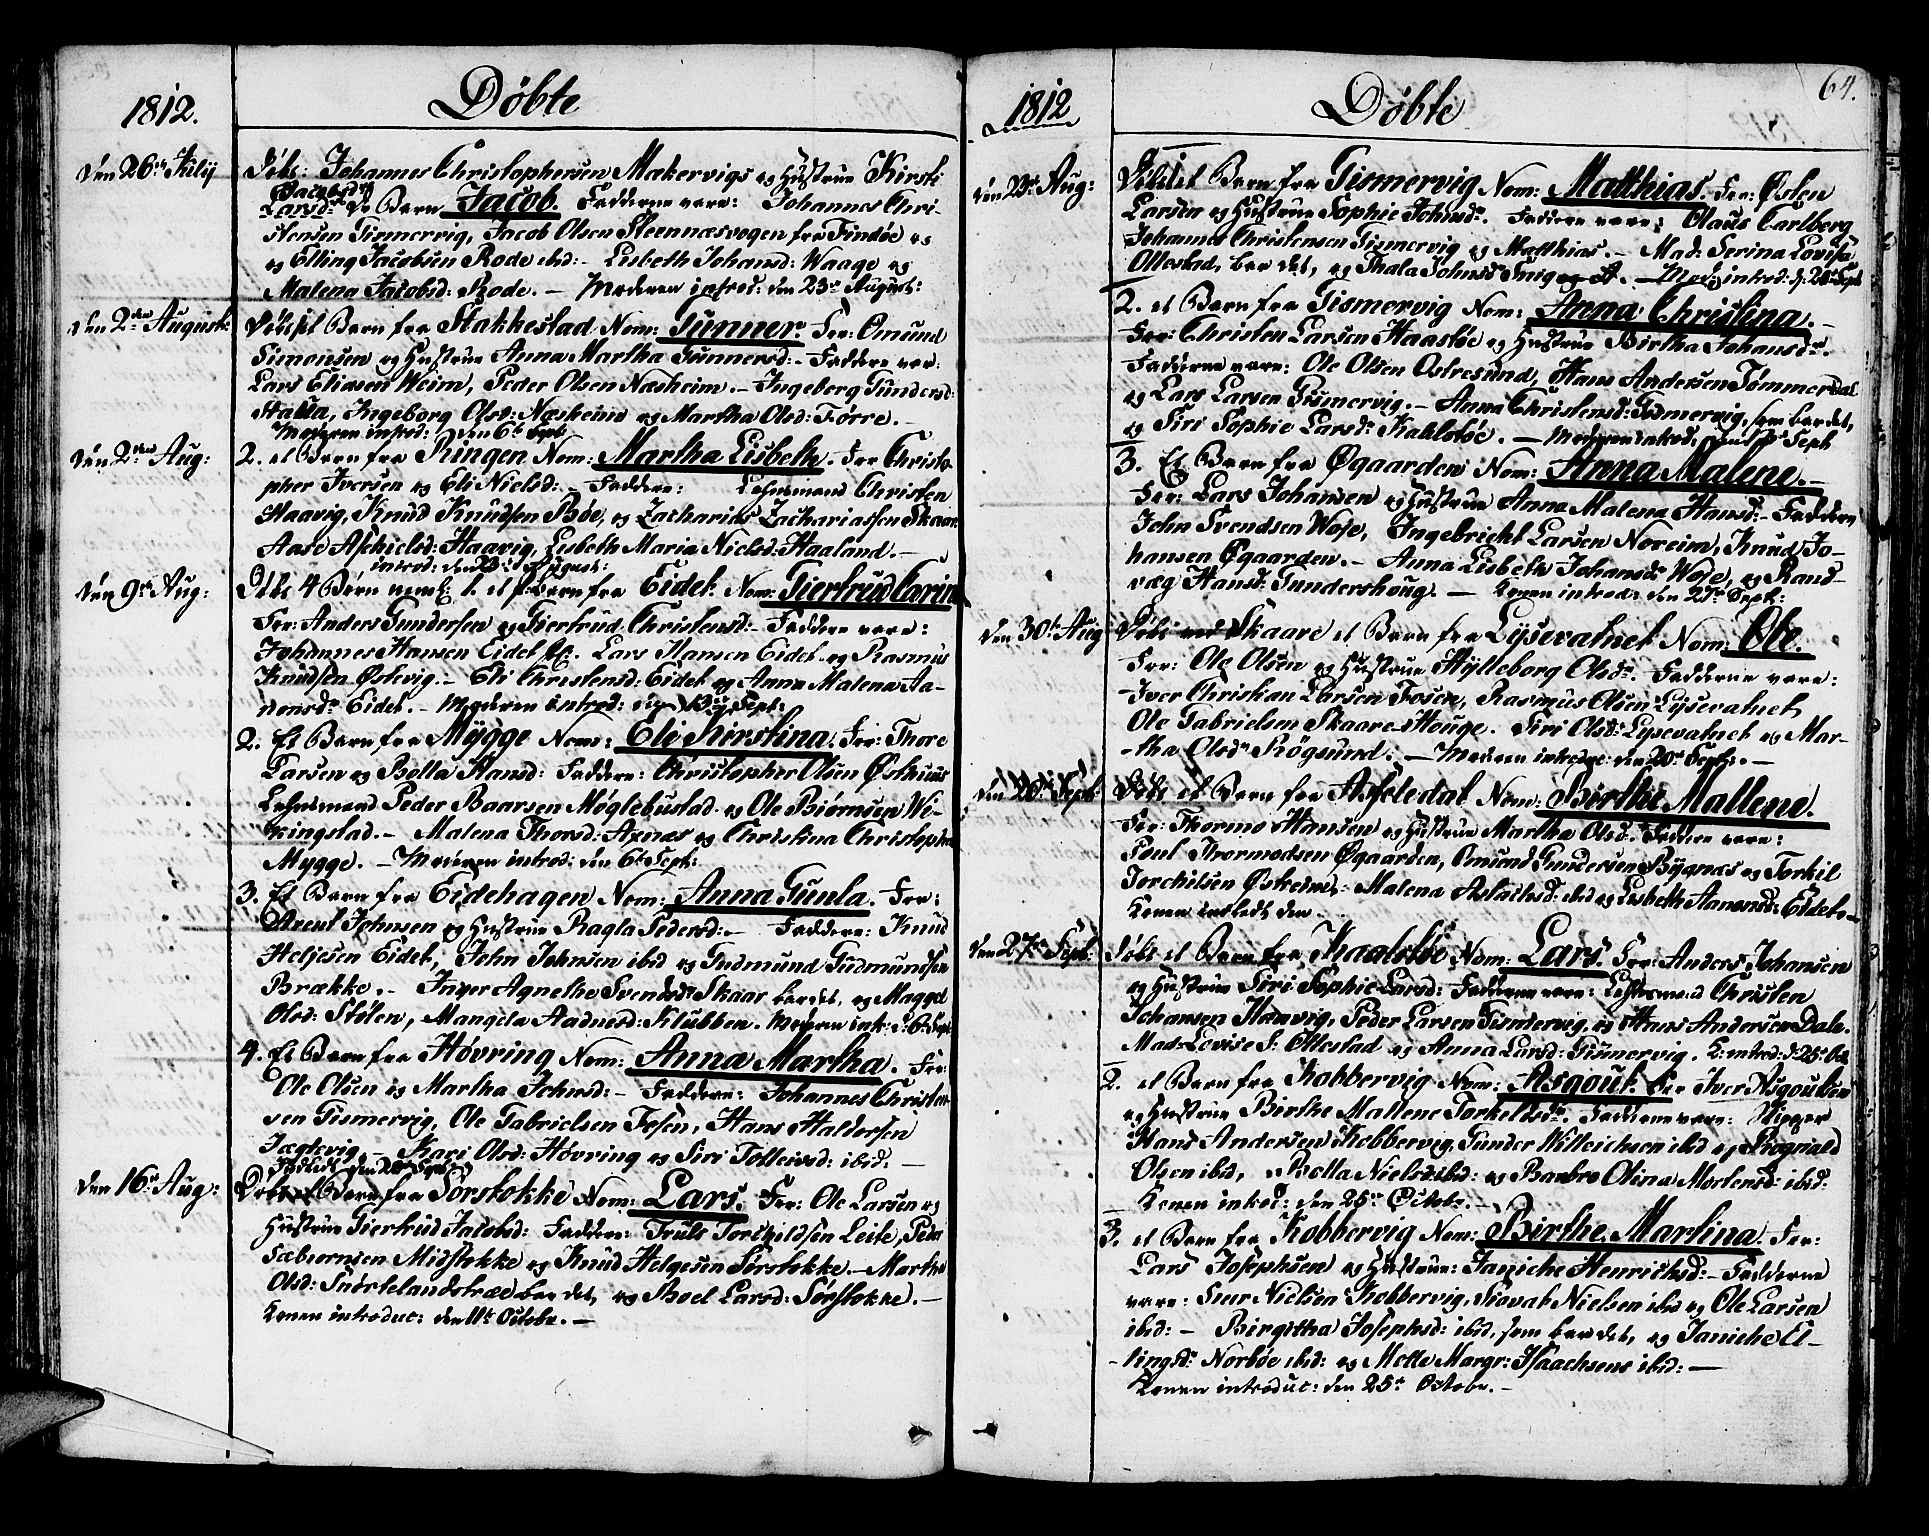 1812.
Döbte
Den 26de Julij
Döbt: Johannes Christophersen Makervigs og Hustrue Kirsti
Jacobsdr
Larsdr De Barn Jacob. Fadderne vare: Johannes Chri-
stensen Tismervig, Jacob Olsen Steennæsvogen fra Findöe og
og Elling Jacobsen Rode ibid: – Lisbeth Johansd: Waage og
Malena Jacobsd: Rode. – Moderen introd: den 23de August:
Den 2den August:
Döbt et Barn fra Stakkestad Nom: Gunner. For: Omund
Simonsen og Hustrue Anna Martha Gunnersd: – Faddere var:
Lars Eliasen Weim, Peder Olsen Næsheim. – Ingeborg Gundersd:
Stalla, Ingeborg Olsd: Næsheim og Martha Olsd: Førre. –
Moderen introd: den 6te Sept:
Den 2den Aug:
2. et Barn fra Ringen Nom: Martha Lisbeth. For Christo-
pher Iversen og Eli Nielsd: – Faddere: Lehnsmand Christen
Haavig, Knud Knudsen Böe, og Zacharias Zachariassen Skaar.
Aase Aschielsd: Haavig, Lisbeth Maria Nielsd: Haaland. –
introd: den 23de August:
Den 9de Aug:
Döbt 4 Börn neml: 1. et Barn fra Eidet Nom: Giertrud Carin
For: Anders Gundersen og Giertrud Christensd: – Faddere vare:
Johannes Hansen Eidet, Lars Hansen Eidet og Rasmus
Knudsen Østevig. – Eli Christensd: Eidet og Anna Malena Aa-
nensdr Eidet. – Moderen introd: Sept:
2. Et Barn fra Mygge Nom: Eli Kirstina. For: Thore
Larsen og Bolla Hansd: Faddere: Christopher Olsen Østhuus
Lehnsmand Peder Baarsen Møglebustad og Ole Biörnsen Wi-
kingstad. – Malena Thorsd: Axnæs og Christina Christophd
Mygge. – Moderen introd: den 6te Sept:
3. Et Barn fra Eidehagen Nom: Anna Gunla. For:
Arent Johnsen og Hustrue Ragla Pedersd: – Faddere: Knud
Heljesen Eidet, John Johnsen ibid og Gudmund Gudmundsen
Brække. – Inger Agnethe Svendsdr Skaar bar det, og Maggel
Olsd: Stølen, Mangela Aadnesd: Klubben. Moderen int: d: 6te Sept:
4. Et Barn fra Høvring Nom: Anna Martha. For:
Ole Olsen og Martha Johnsd: – Faddere: Johannes Christen-
sen Tismervig, Ole Gabrielsen Fosen, Hans Haldorsen
Jægtevig. – Kari Olsd: Høvring og Siri Tolleivsd: ibid: –
Indledt den 20de Sept:
Den 16de Aug:
Döbt et Barn fra Sørstokke Nom: Lars. For: Ole Larsen og
Hustrue Giertrud Jacobsd: Faddere: Truls Torchildsen Leite, Peder
Sæbiornsen Midstokke og Knud Helgesen Sørstokke. – Martha
Olsd: Snørtelandstræe bar det, og Aboel Larsd: Sørstokke. –
Konen introduc: den 11te Octobr. –
1812
Döbte
64.
Den 23de Aug:
Döbt et Barn fra Tismervig Nom: Matthias. For: Østen
Larsen og Hustrue Sophie Johnsdr. Faddere vare: Olaus Carlberg
Johannes Christensen Tismervig og Matthias. – Mad: Serina Lovisa
Ollestad, bar det, og Thala Johnsd – Mod: introd: d: 20de Sept
2. et Barn fra Tismervig Nom: Anna Christina. –
For: Christen Larsen Haastöe og Hustrue Birtha Johansdr.
Fadderne vare: Ole Olsen Ostresund, Hans Andersen Tømmerdal
og Lars Larsen Tismervig. – Anna Christensd: Tismervig, som bar det,
og Siri Sophie Larsdr Kahlstöe. – Moderen introd: Sept
3. Et Barn fra Øgaarden Nom: Anna Malene. –
For: Lars Johansen og Hustrue Anna Malena Hansd: – Faddere
John Svendsen Woje, Ingebricht Larsen Noreim, Knud Jo-
hansen Øgaarden. – Anna Lisbeth Johansd Woje, og Rand-
væg Hansd: Gundershoug. – Konen introd: den 27de Sept:
Den 30te Aug
Döbt ved Skaare et Barn fra Lysevatnet Nom: Ole.
For: Ole Olsen og Hustrue Hylleborg Olsdr. Fadderne vare:
Iver Christian Larsen Fosen, Rasmus Olsen Lysevatnet,
Ole Gabrielsen Skaare-Houge. Siri Olsd: Lysevatnet og Mar-
tha Olsdr Røgsund. – Moderen introd: den 20de Sept: –
Den 20de Sept:
Döbt et Barn fra Axseledal Nom: Birthe Mallene.
For: Thormo Hansen og Hustrue Martha Olsd. Faddere vare:
Poul Thormodsen Øgaarden, Omund Gundersen Bygnæs og Torkil
Torchilsen Østreim. Malena Aslachsd: ibid og Lisbeth Aanensd: Eidet. –
Konen indledt den –
Den 27de Sept:
Döbt et Barn fra Kaalstöe Nom: Lars. For: Anders Johansen
og Hustrue Siri Sophie Larsd: Fadderne vare: Lehnsmand Christen
Johansen Haavig, Peder Larsen Tismervig, og Hans Andersen Dale.
Mad: Lovise S: Ollestad og Anna Larsd: Tismervig. K: introd: d: 25de Oct
2. et Barn fra Kobbervig Nom: Asgout. For Iver Asgoutsen
og Hustrue Birthe Mallene Torkellsdr. Fadderne vare: Skipper
Hans Andersen Kobbervig, Gunder Willeichsen ibid og Rognald
Olsen ibid, Bolla Nielsd: ibid: og Barbro Olina Mortensd: ibid:
Konen introd: den 25de Octobr. –
3. et Barn fra Kobbervig Nom: Birthe Martina. For:
Lars Josephsen og Hustrue: Janiche Henrichsd: – Fadderne
vare: Siur Nielsen Kobbervig, Siovat Nielsen ibid og Ole Larsen
ibid: – Birgitha Josephsd: ibid, som bar det, og Janiche El-
lingsdr Norböe ibid: og Mette Margr: Isaachsens ibid: –
Konen introduc: den 25de Octobr. –